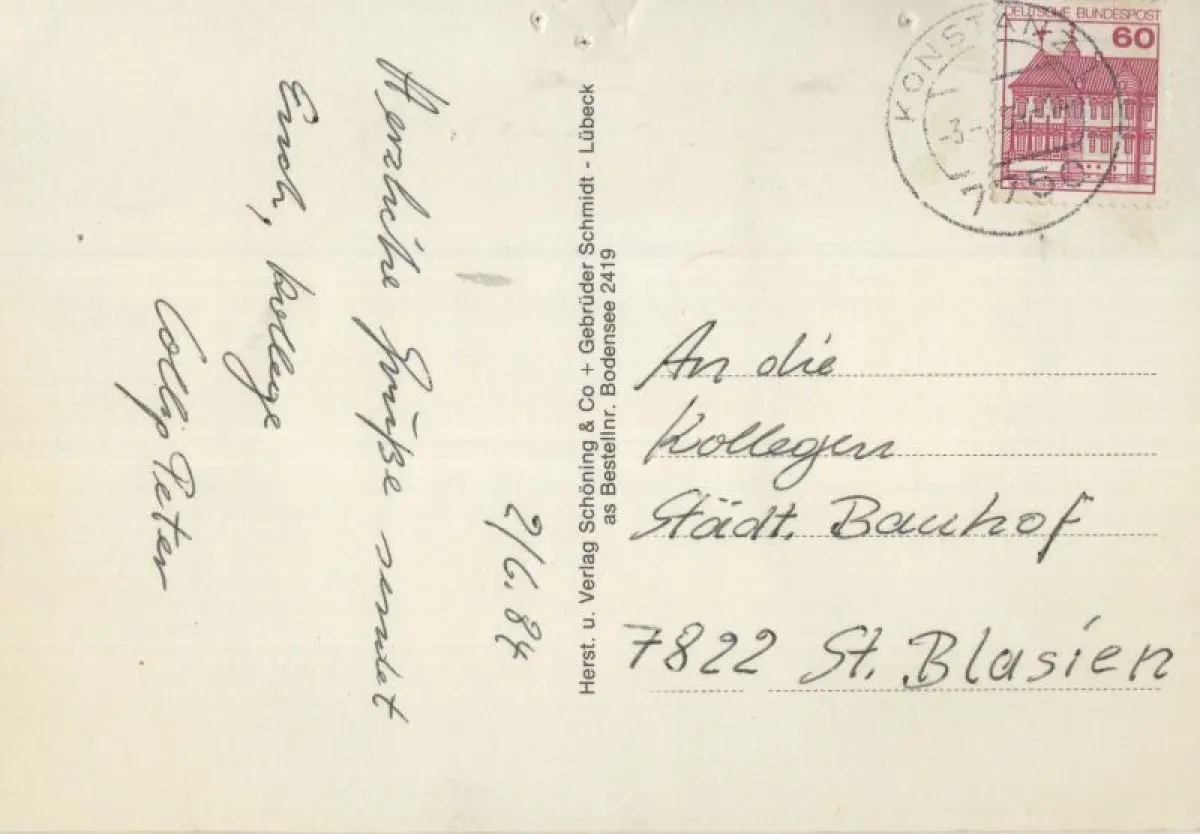 2/6.84
Herzliche Grüße sendet
Euch, Kollege
Peter
Herst. u. Verlag Schöning & Co + Gebrüder Schmidt - Lübeck
as Bestellnr. Bodensee 2419
DEUTSCHE BUNDESPOST
60
KONSTANZ
7750
An die
Kollegen
Städt. Bauhof
7822 St. Blasien